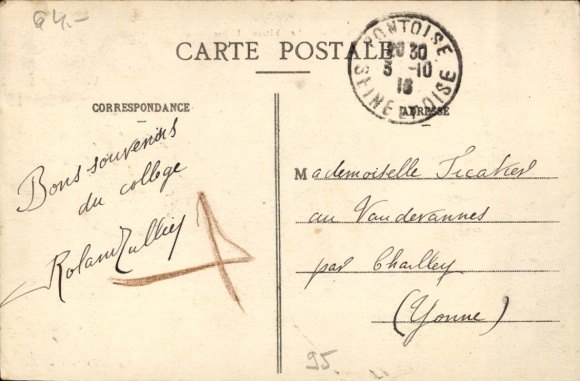 64.-
CARTE POSTALE
PONTOISE
20 30
3 -10
SEINE ET OISE
CORRESPONDANCE
ADRESSE
Bons souvenirs
du collège
Roland
Mademoiselle
au Vaudevannes
par Chailley
(Yonne)
95.